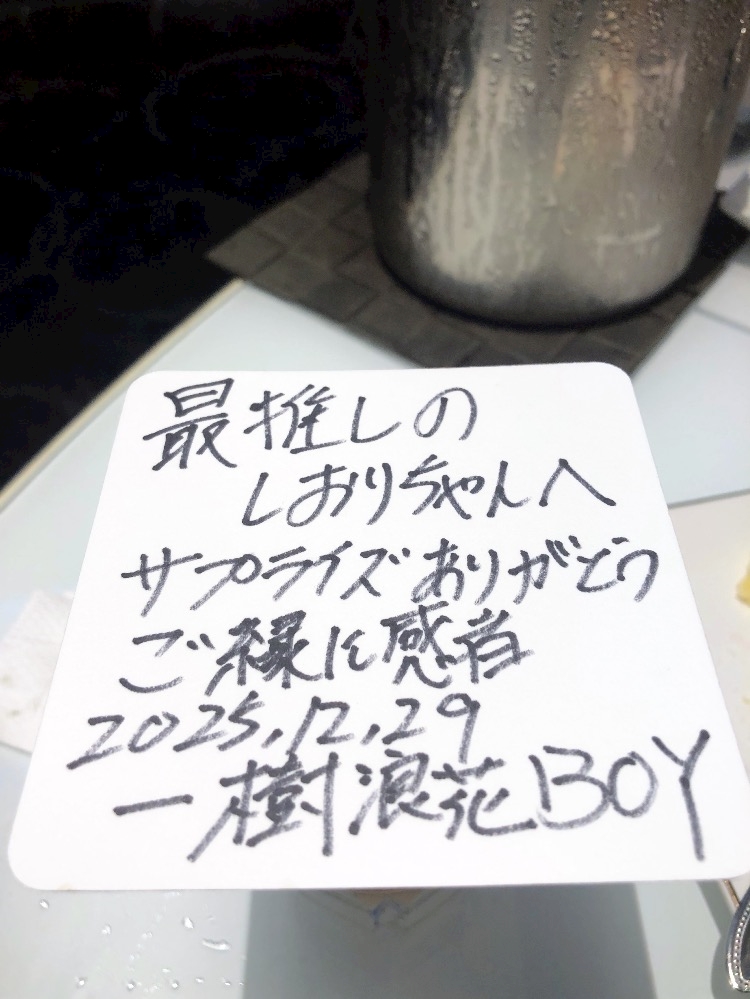 最推しの
しおりちゃんへ
サプライズありがとう
ご縁に感謝
2025.12.29
一樹浪花BOY